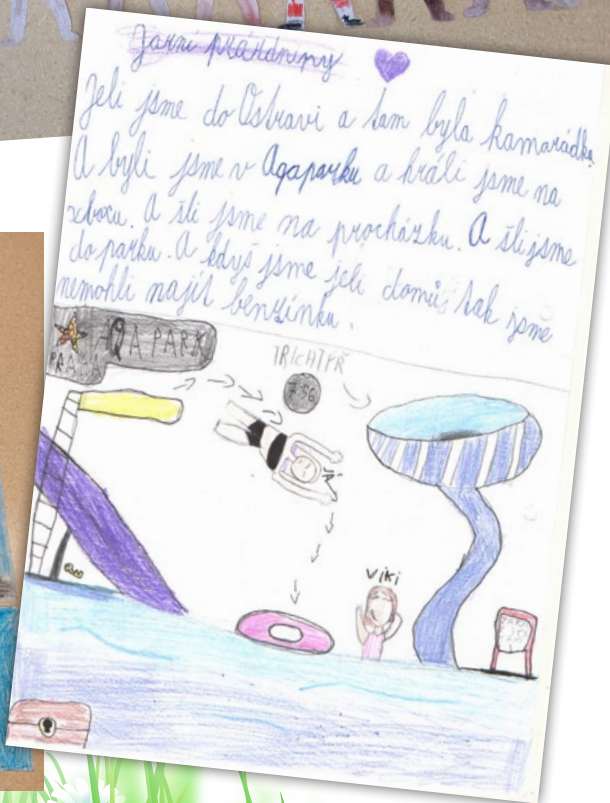 Jarní prázdniny
Jeli jsme do Ostravi a tam byla kamarádka
A byli jsme v Aqaparku a hráli jsme na
xboxu. A šli jsme na procházku. A šli jsme
do parku. A kdyš jsme jeli domů, tak jsme
nemohli najít benzínku.
AQAPARK
TRICHTÝŘ
7:56
Viki